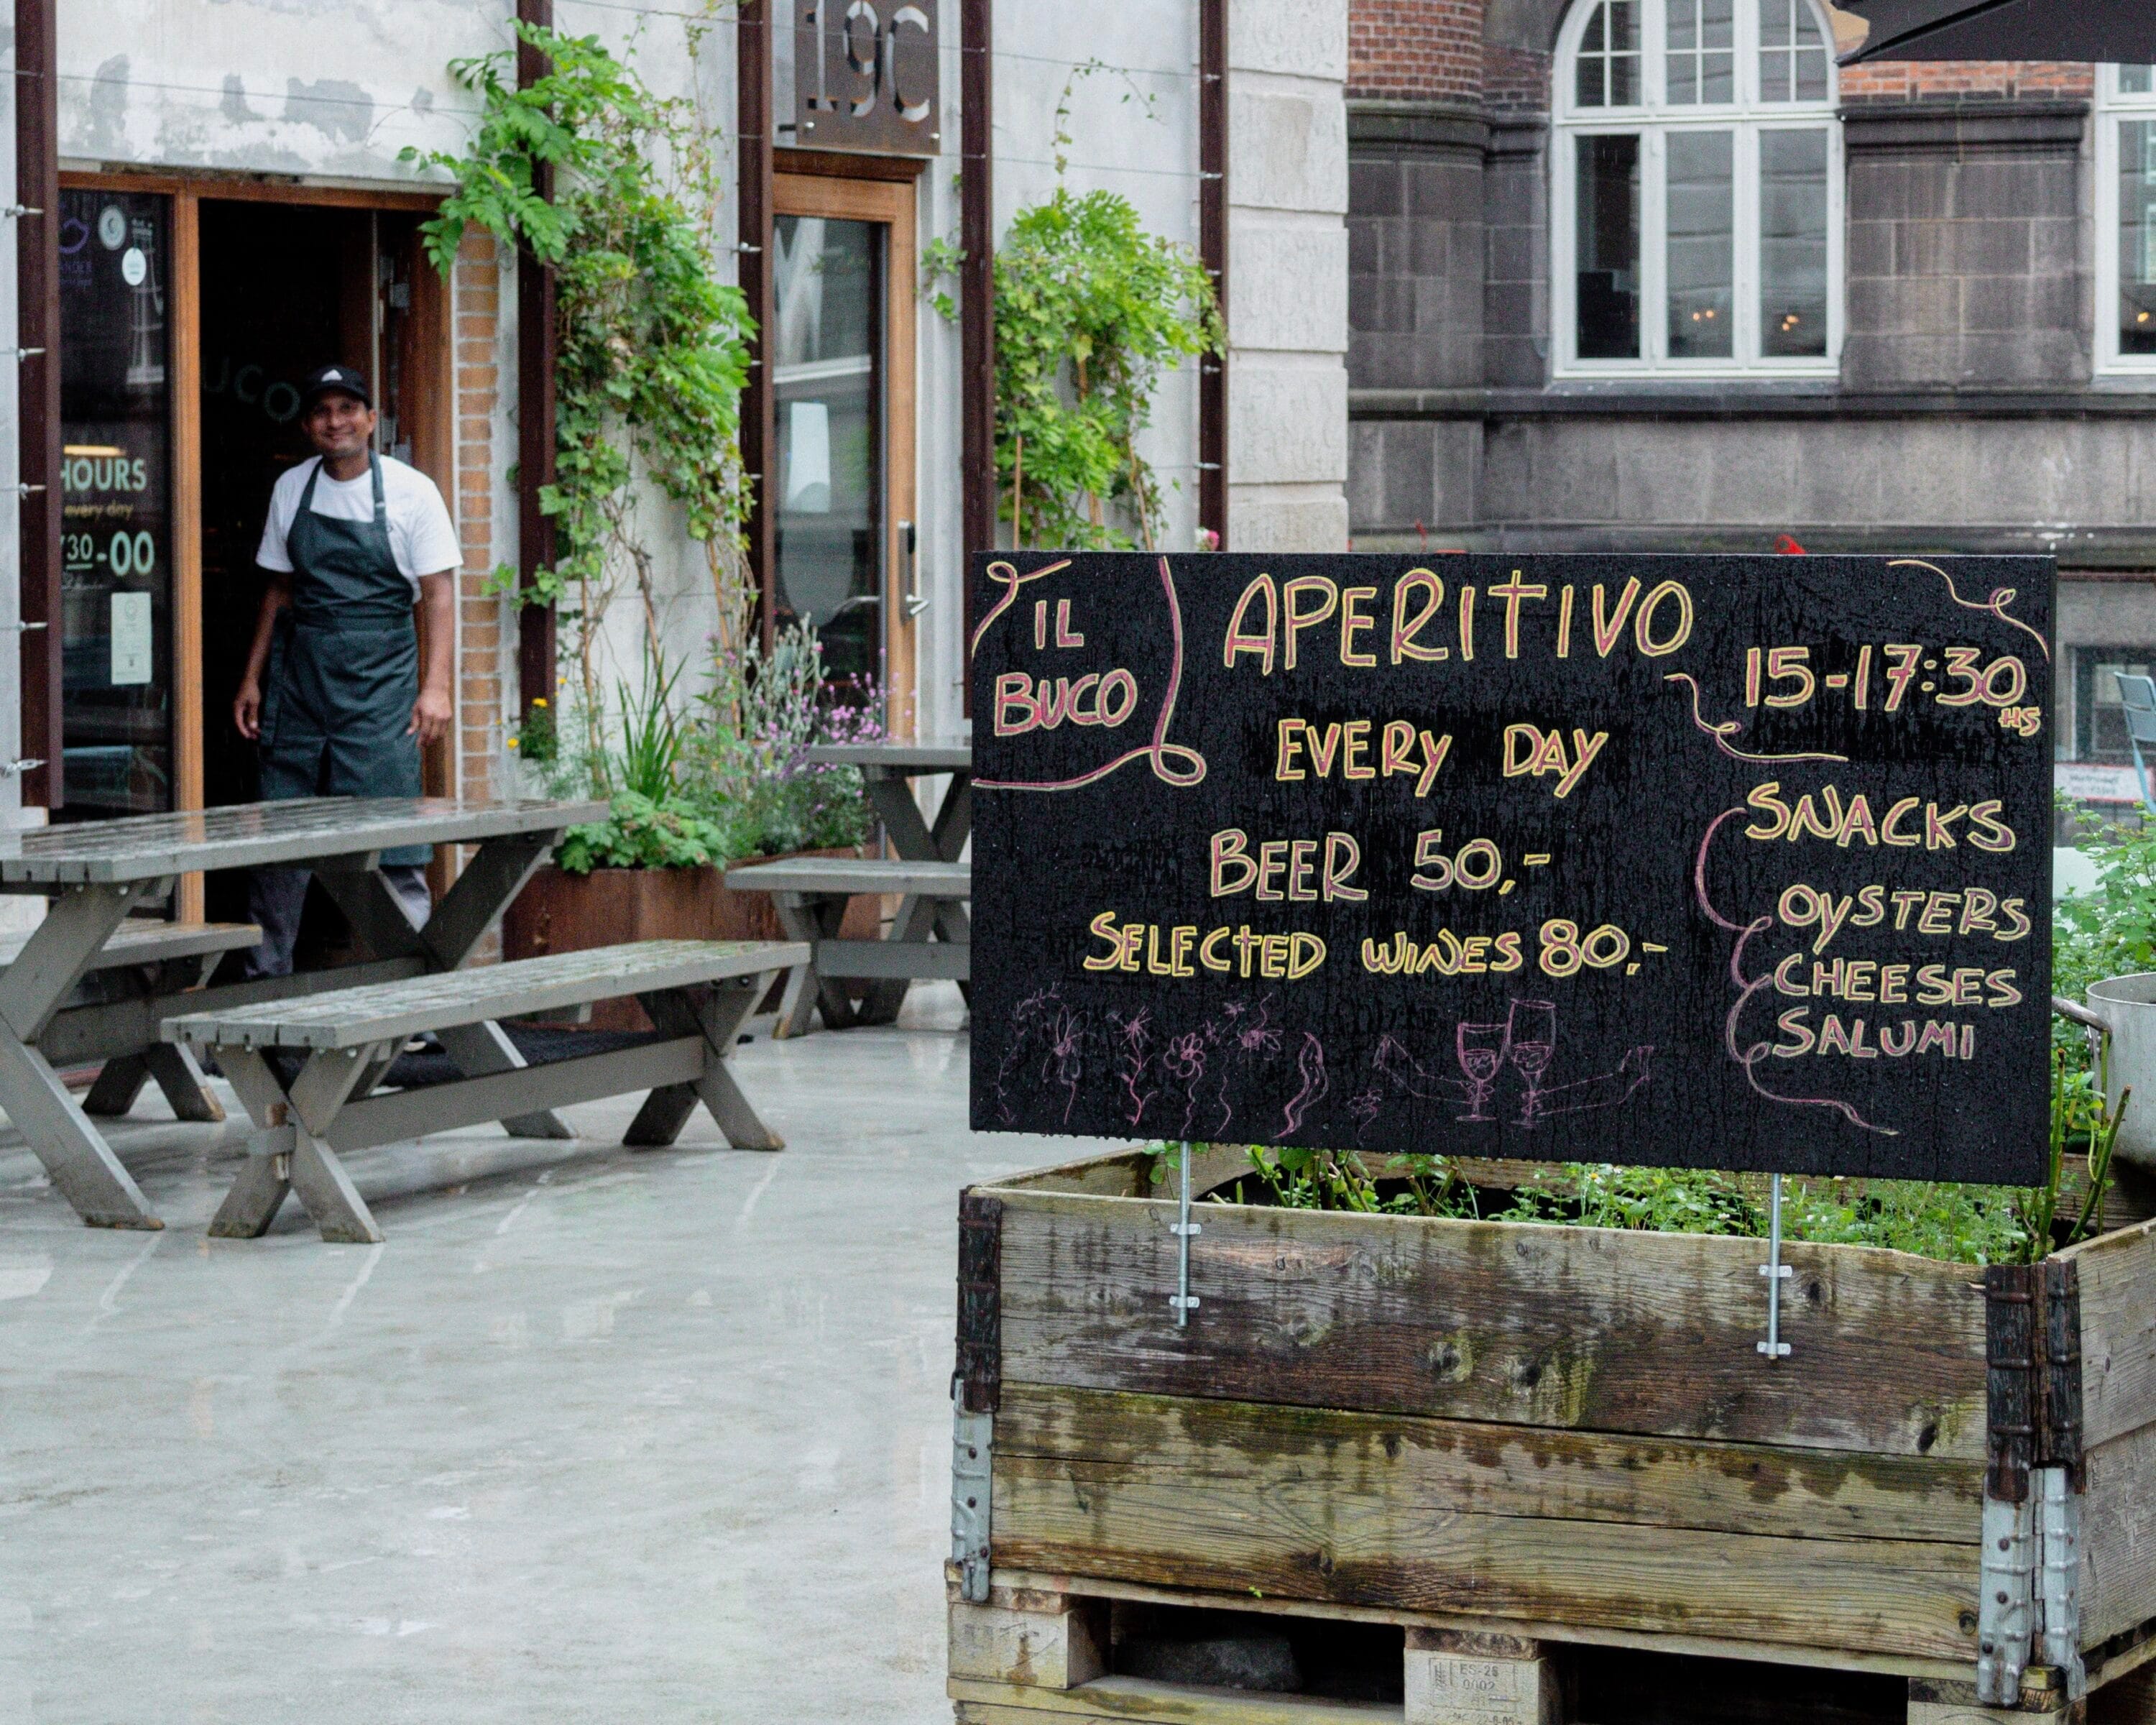 19C
UCO
HOURS
every day
30-00
IL
BUCO
APERITIVO
15-17:30
HS
EVERY DAY
BEER 50,-
SELECTED WINES 80,-
SNACKS
OYSTERS
CHEESES
SALUMI
ES-26
0002